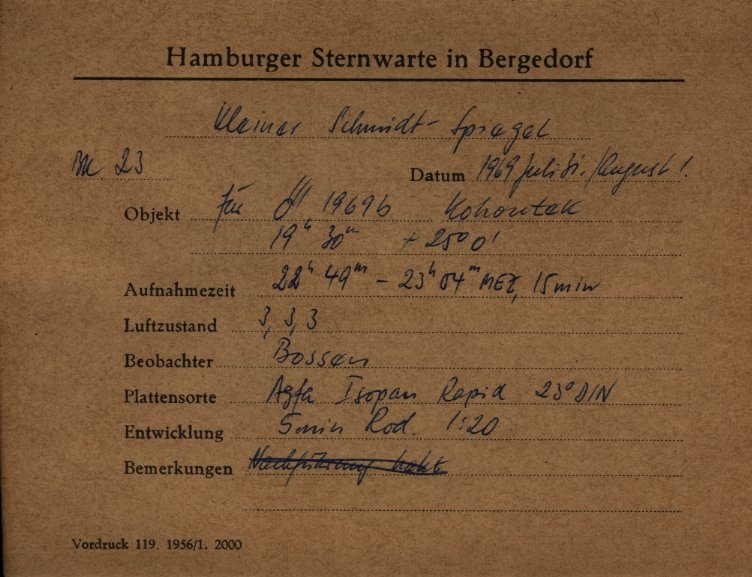 Hamburger Sternwarte in Bergedorf
Kleiner Schmidt-Spiegel
23 Datum 1969 Juli 31./August 1.
Objekt für 1969b Kohoutek
19h 30m +25°0'
Aufnahmezeit 22h 49m - 23h 04m MEZ, 15 min
Luftzustand 3, 3, 3
Beobachter Bossen
Plattensorte Agfa Isopan Rapid 23° DIN
Entwicklung 5 min Rod. 1:20
Bemerkungen Nachführung hakt
Vordruck 119. 1956/1. 2000